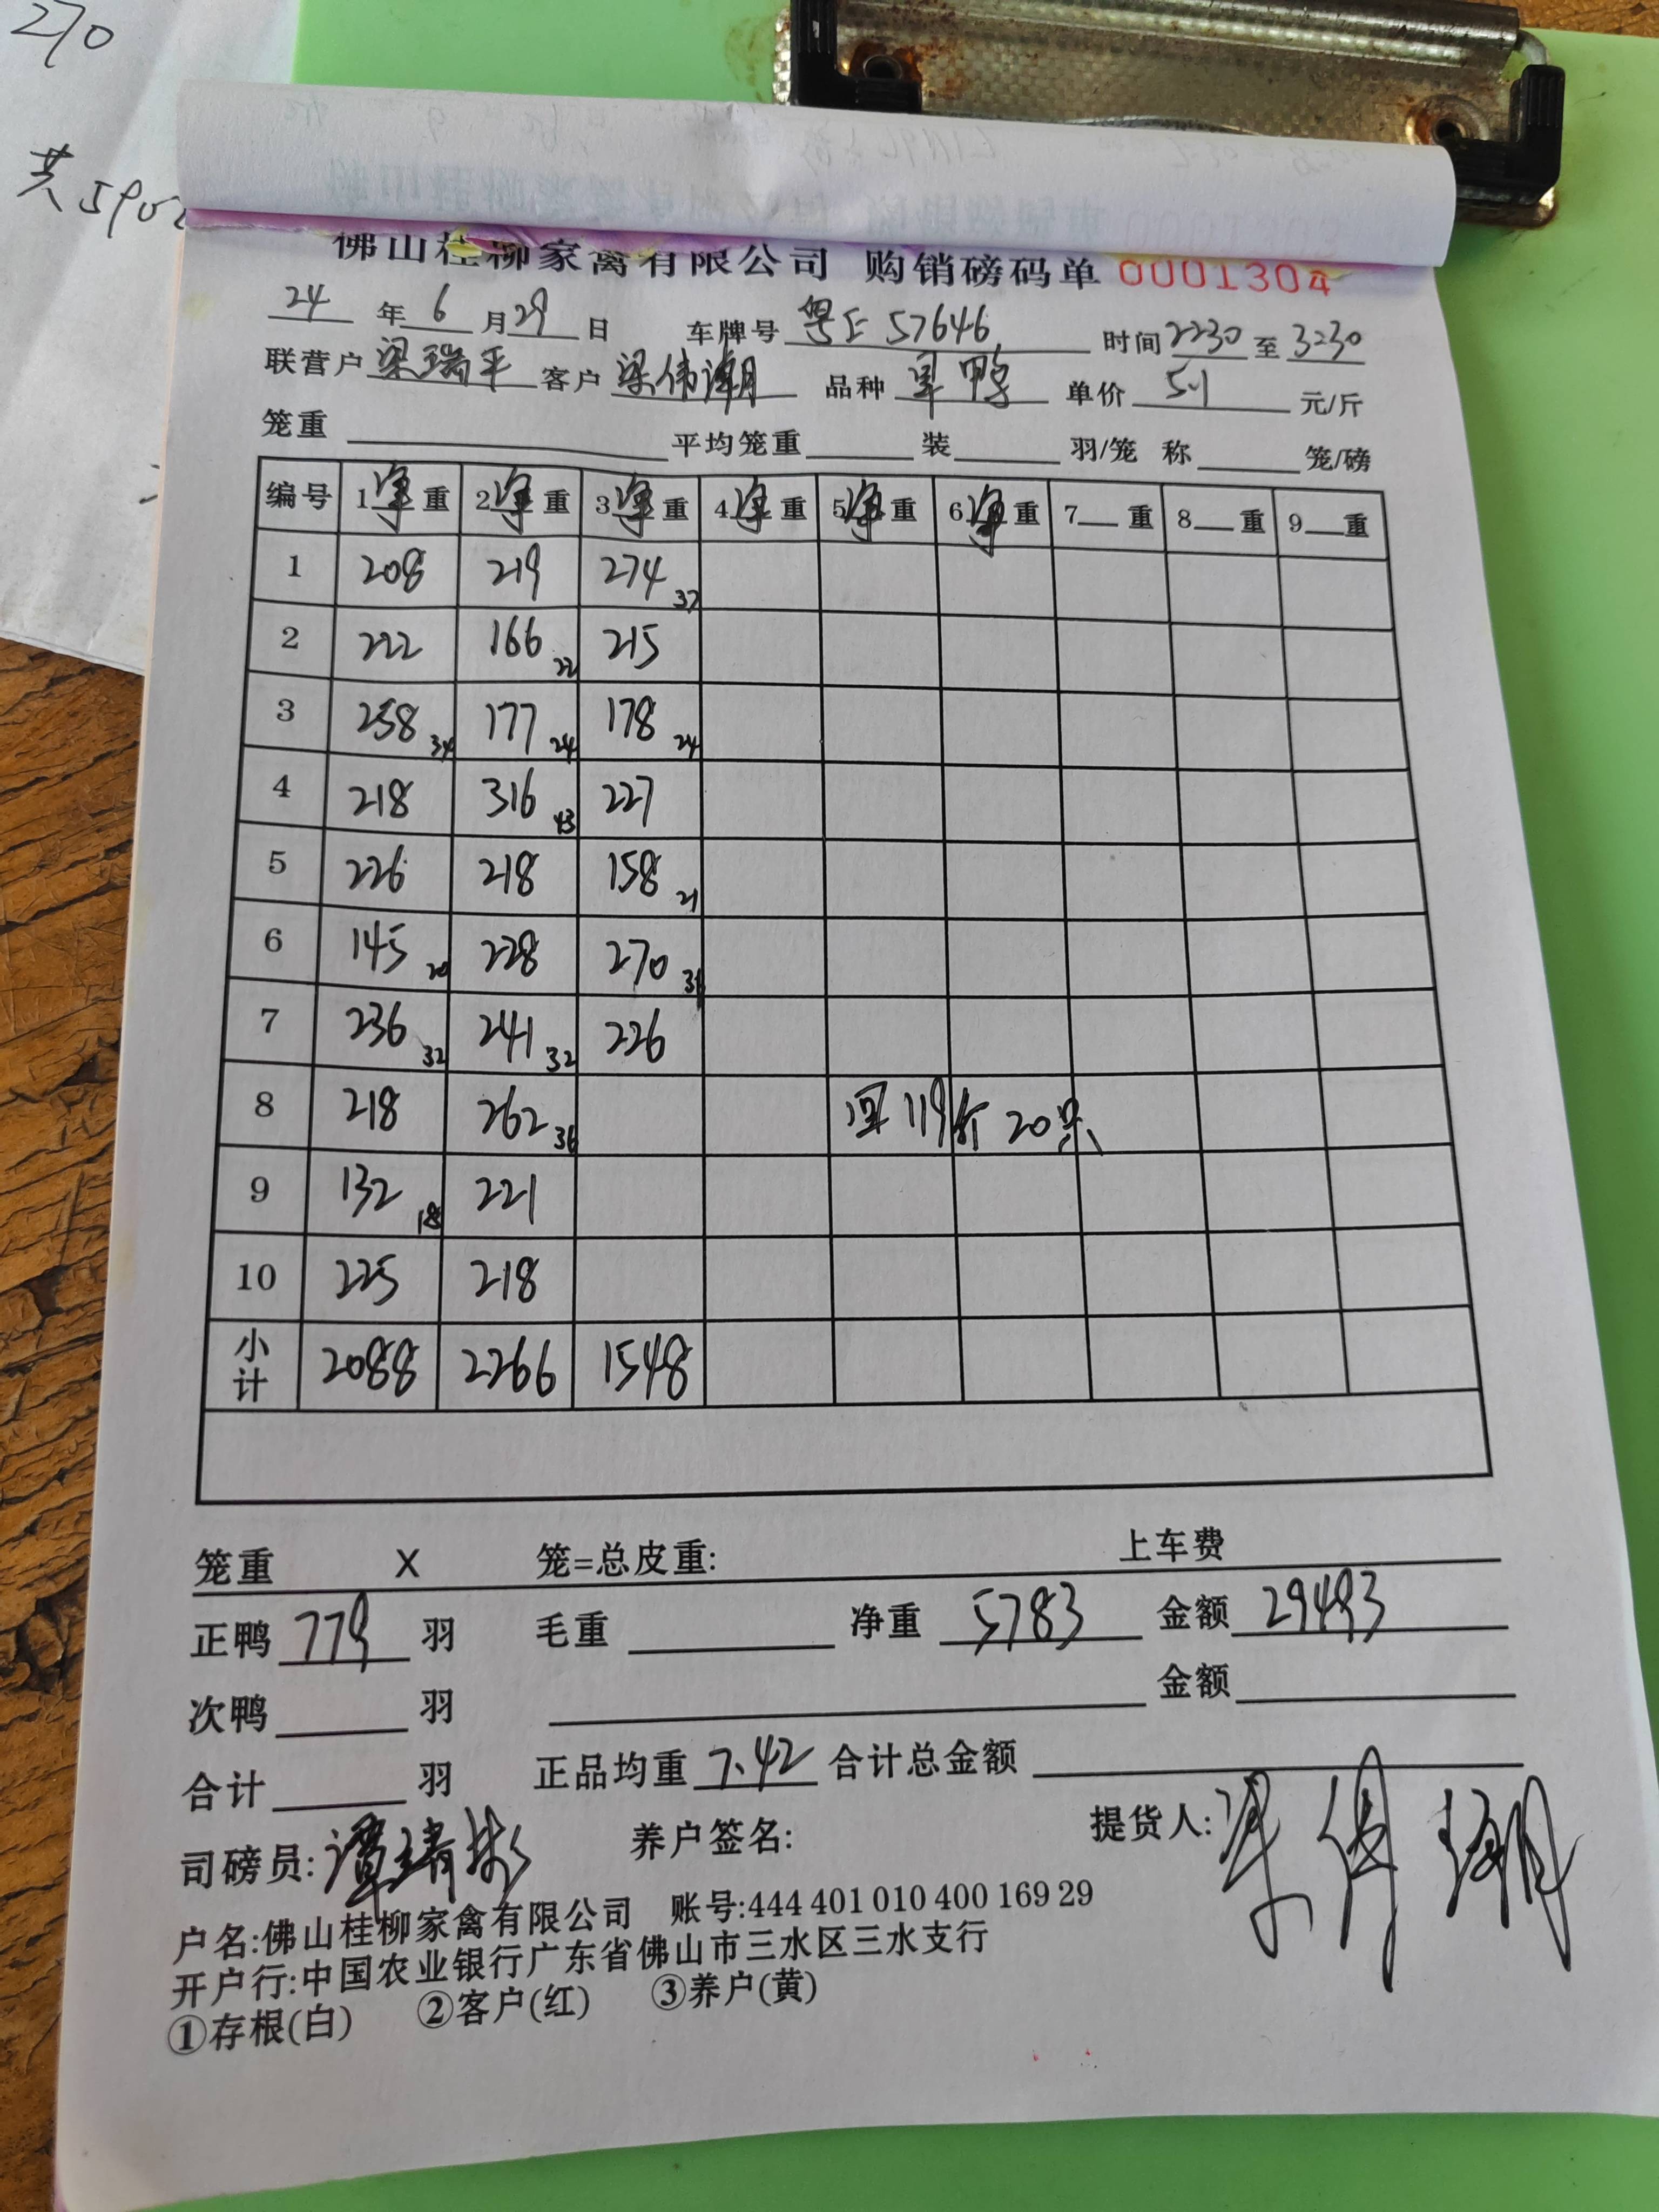 270
共5902
佛山桂柳家禽有限公司 购销磅码单 0001304
24 年 6 月 29 日 车牌号 粤E 57646 时间 2230 至 3230
联营户 梁瑞平 客户 梁伟潮 品种 旱鸭 单价 5.1 元/斤
笼重 平均笼重 装 羽/笼 称 笼/磅
编号 1 净 重 2 净 重 3 净 重 4 净 重 5 净 重 6 净 重 7 重 8 重 9 重
1 208 219 274 37
2 222 166 22 215
3 258 34 177 24 178 24
4 218 316 43 227
5 226 218 158 21
6 145 20 228 270
7 236 32 241 32 226
8 218 262 36 回 119斤 20只
9 132 18 221
10 225 218
小计 2088 2266 1548
笼重 X 笼=总皮重: 上车费
正鸭 779 羽 毛重 净重 5783 金额 29493
次鸭 羽 金额
合计 羽 正品均重 7.42 合计总金额
司磅员: 养户签名: 提货人:
户名:佛山桂柳家禽有限公司 账号:444 401 010 400 169 29
开户行:中国农业银行广东省佛山市三水区三水支行
①存根(白) ②客户(红) ③养户(黄)